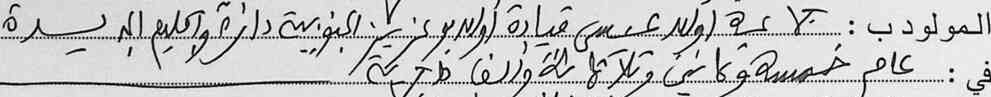 المولود ب: جماعة أولاد عيسى قيادة أولاد بوعزيز الجنوبية دائرة وإقليم الجديدة
في: عام خمسة وثمانين وثلاثمائة وألف هجرية